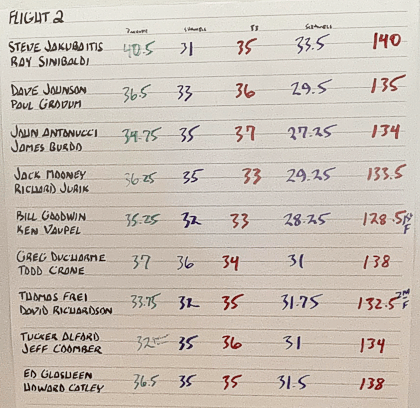 FLIGHT 2
SCRAMBLE SCRAMBLE
STEVE JAKUBAITIS 40.5 31 35 33.5 140
RAY SINIBALDI
DAVE JOHNSON 36.5 33 36 29.5 135
PAUL GRODUM
JOHN ANTONUCCI 34.75 35 37 27.25 134
JAMES BURDO
JACK MOONEY 36.25 35 33 29.25 133.5
RICHARD JURIK
BILL GOODWIN 35.25 32 33 28.25 128.5 1ST F
KEN VAUPEL
GREG DUCHARME 37 36 34 31 138
TODD CRONE
THOMAS FREI 33.75 32 35 31.75 132.5 2ND F
DAVID RICHARDSON
TUCKER ALFORD 32 35 36 31 134
JEFF COOMBER
ED GLASHEEN 36.5 35 35 31.5 138
HOWARD COTLEY